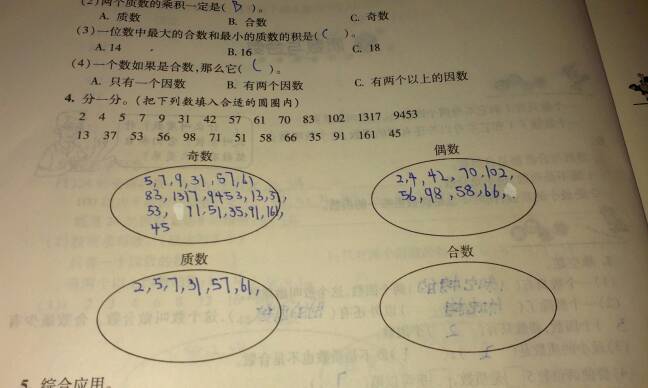 (2)两个质数的乘积一定是( B )。
A. 质数 B. 合数 C. 奇数
(3)一位数中最大的合数和最小的质数的积是( C )。
A. 14 B. 16 C. 18
(4)一个数如果是合数,那么它( C )。
A. 只有一个因数 B. 有两个因数 C. 有两个以上的因数
4. 分一分。(把下列数填入合适的圆圈内)
2 4 5 7 9 31 42 57 61 70 83 102 1317 9453
13 37 53 56 98 71 51 58 66 35 91 161 45
奇数 偶数
5,7,9,31,57,61
83,1317,9453,13,37,
53, 71,51,35,91,161,
45
2,4,42,70,102,
56,98,58,66,
质数 合数
2,5,7,31,57,61,
5. 综合应用。